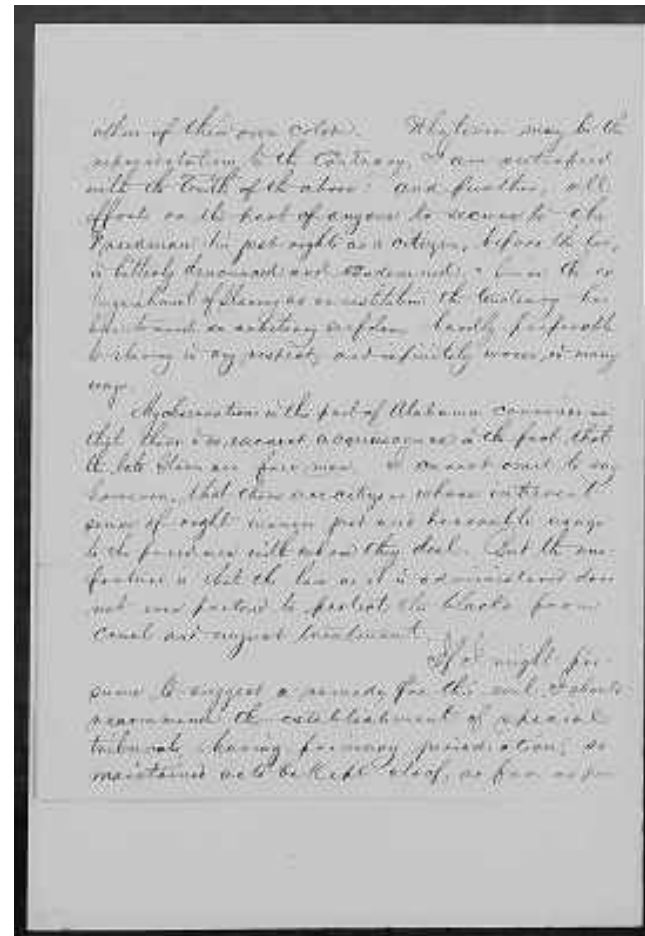 of their own color. Whatever may be the
representation to the Contrary, I am
with the truth of the above: and further, all
effort on the part of anyone to secure to the
Freedman his just rights as a citizen, before the law,
is bitterly denounced and condemned.
of Slavery as an institution the
hardly preferable
to slavery in any respect, and infinitely worse in many
ways.
My observation in this part of Alabama convinces me
that there is no acquiescence in the fact, that
the late Slaves are free men. I cannot omit to say
however, that there are citizens whose inherent
sense of right just and honorable usage
to the freedmen with whom they deal. But the
is that the law as it is administered does
not even pretend to protect the blacks from
cruel and unjust treatment.
If I might pre-
sume to suggest a remedy for this evil I should
recommend the establishment of special
tribunals having primary jurisdiction, so
maintained as to be kept aloof, as far as